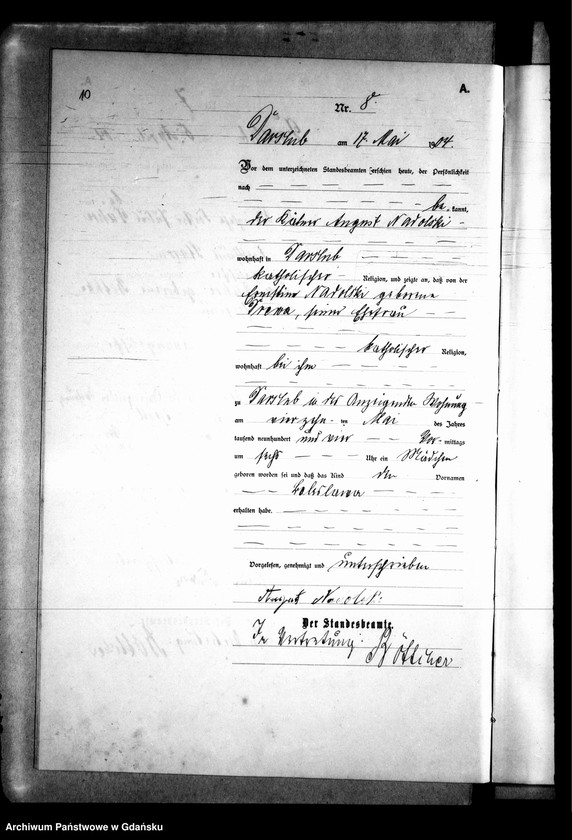 10
A.
Nr. 8.
Darslub am 17. Mai 1904.
Vor dem unterzeichneten Standesbeamten erschien heute, der Persönlichkeit
nach
be kannt,
der Käthner August Nadolski
wohnhaft in Darslub
katholischer Religion, und zeigte an, daß von der
Ernestine Nadolski geborene
seiner Ehefrau
katholischer Religion,
wohnhaft bei ihm
zu Darslub in des Anzeigenden Wohnung
am vierzehn ten Mai des Jahres
tausend neunhundert und vier Vor mittags
um sechs Uhr ein Mädchen
geboren worden sei und daß das Kind den Vornamen
Boleslawa
erhalten habe.
Vorgelesen, genehmigt und unterschrieben
August Nadolski
Der Standesbeamte.
In Vertretung:
Böttcher
Archiwum Państwowe w Gdańsku